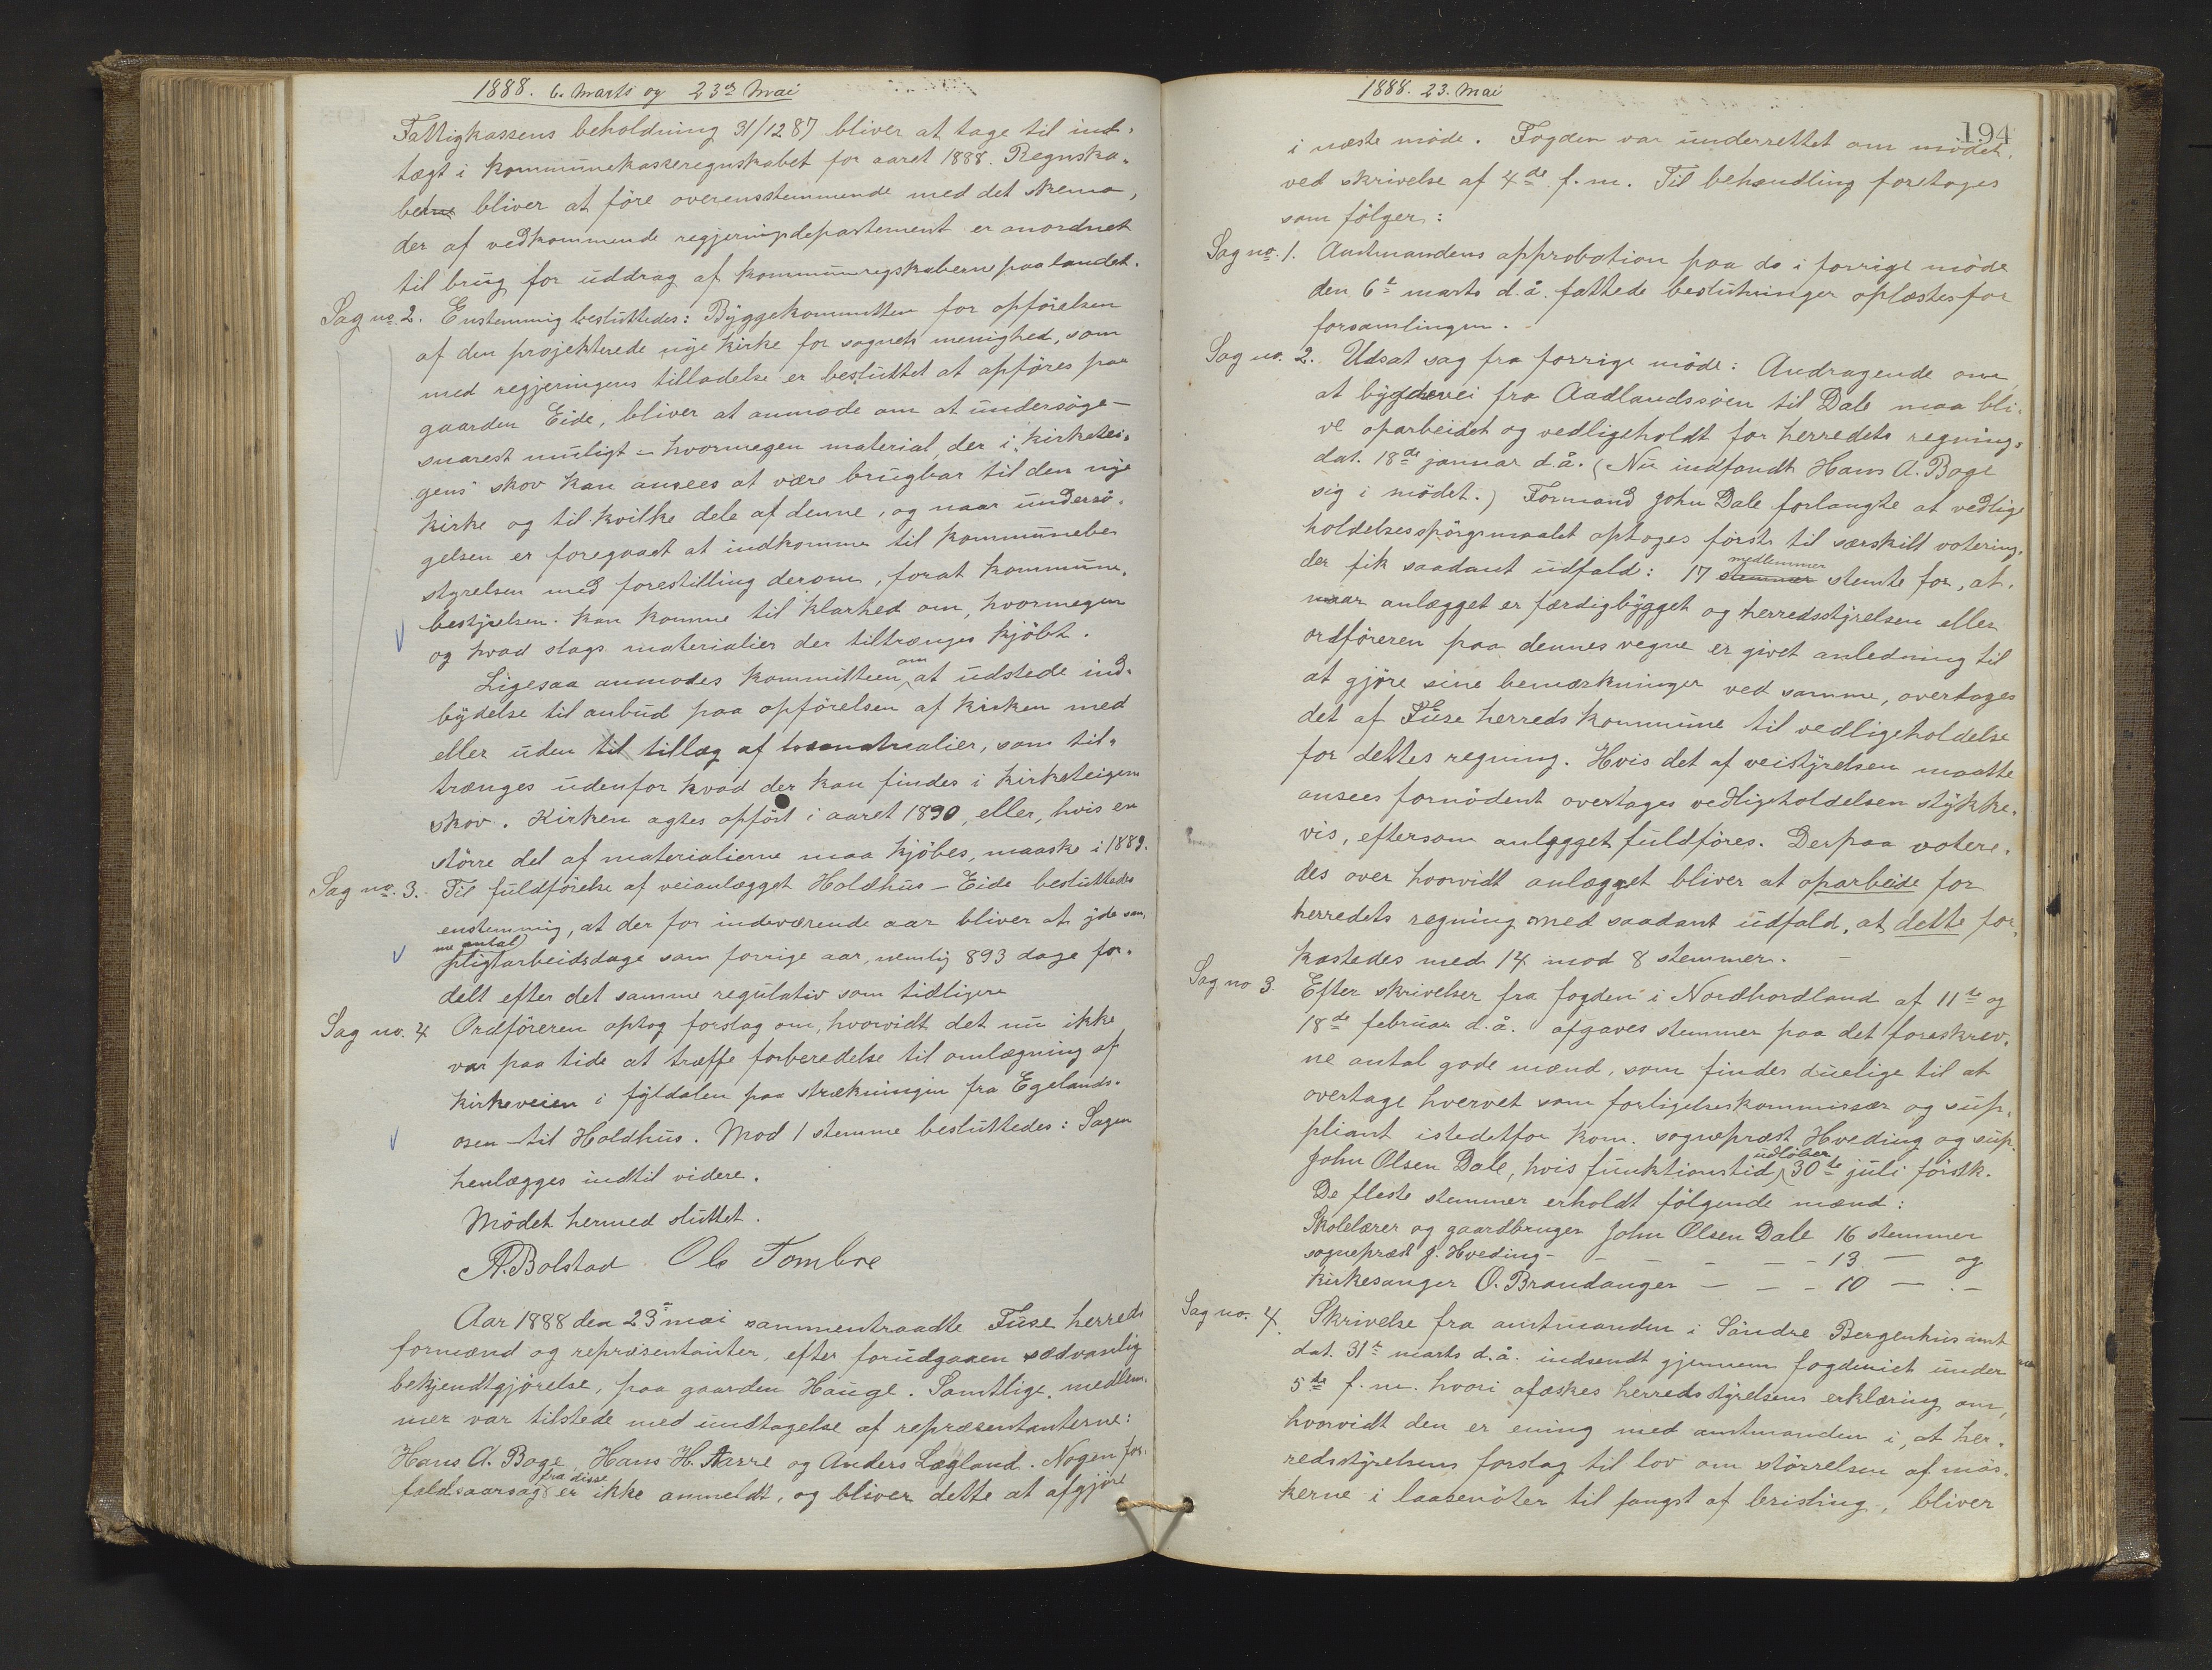 1888. 6. Marts og 23de Mai
Fattigkassens beholdning 31/12 87 bliver at tage til ind-
tægt i kommunekasseregnskabet for aaret 1888. Regnska-
bet bliver at føre overensstemmende med det skema,
der af vedkommende regjeringsdepartement er anordnet
til brug for uddrag af kommuneregskaberne paa landet.
Sag no. 2. Enstemmig besluttedes: Byggekommitteen for opførelsen
af den projekterede nye kirke for sognets menighed, som
med regjeringens tilladelse er besluttet at opføres paa
gaarden Eide, bliver at anmode om at undersøge –
snarest muligt – hvormegen material, der i "kirketei-
gens" skov kan ansees at være brugbar til den nye
kirke og til hvilke dele af denne, og naar undersø-
gelsen er foregaaet at indkomme til kommunebe-
styrelsen med forestilling derom, forat kommune-
bestyrelsen kan komme til klarhed om, hvormegen
og hvad slags materialier der tiltrænges kjøbt.
Ligesaa anmodes kommitteen om at udstede ind-
bydelse til anbud paa opførelsen af kirken med
eller uden til tillæg af materialier, som til-
trænges udenfor hvad der kan findes i kirketeigens
skov. Kirken agtes opført i aaret 1890, eller, hvis en
større del af materialierne maa kjøbes, maaske i 1889.
Sag no. 3. Til fuldførelse af veianlægget Holdhus – Eide besluttedes
enstemmig, at der for indeværende aar bliver at yde sam-
me antal
pligtarbeidsdage som forrige aar, nemlig 893 dage for-
delt efter det samme regulativ som tidligere
Sag no. 4 Ordføreren optog forslag om, hvorvidt det nu ikke
var paa tide at træffe forberedelse til omlægning af
kirkeveien i fyldalen paa strækningen fra Egelands-
osen – til Holdhus. Mod 1 stemme besluttedes: Sagen
henlægges indtil videre.
Mødet hermed sluttet.
A. Bolstad Ole Tombre
Aar 1888 den 23de mai sammentraadte Fuse herreds
formænd og repræsentanter, efter forudgaaen sædvanlig
bekjendtgjørelse, paa gaarden Hauge. Samtlige medlem-
mer var tilstede med undtagelse af repræsentanterne:
Hans A. Boge, Hans H. Aarre og Anders Lægland. Nogen for-
faldsaarsag fra disse er ikke anmeldt, og bliver dette at afgjøre
1888. 23. Mai
194
i næste møde. Fogden var underrettet om mødet,
ved skrivelse af 4de f. m. Til behandling foretoges
som følger:
Sag no. 1. Amtmandens approbation paa de i forrige møde
den 6te marts d. å. fattede beslutninger oplæstes for
forsamlingen.
Sag no. 2. Udsat sag fra forrige møde: Andragende om
at bygdevei fra Aadlandssøen til Dale maa bli-
ve oparbeidet og vedligeholdt for herredets regning,
dat. 18de januar d. å. (Nu indfandt Hans A. Boge
sig i mødet.) Formand John Dale forlangte at vedlige
holdelsesspørgsmaalet optoges først til særskilt votering,
der fik saadant udfald: 17 stemmer medlemmer stemte for, at,
naar anlægget er færdigbygget og herredsstyrelsen eller
ordføreren paa dennes vegne er givet anledning til
at gjøre sine bemærkninger ved samme, overtages
det af Fuse herredskommune til vedligeholdelse
for dettes regning. Hvis det af veistyrelsen maatte
ansees fornødent overtages vedligeholdelsen stykke-
vis, eftersom anlægget fuldføres. Derpaa votere-
des over hvorvidt anlægget bliver at oparbeide for
herredets regning med saadant udfald, at dette for-
kastedes med 14 mod 8 stemmer. –
Sag no 3. Efter skrivelser fra fogden i Nordhordland af 11te og
18de februar d. å. afgaves stemmer paa det foreskrev-
ne antal gode mænd, som findes duelige til at
overtage hvervet som forligelseskommissær og sup-
pliant istedetfor kom. sogneprest Hveding og sup.
John Olsen Dale, hvis funktionstid udløber 30te juli førstk.
De fleste stemmer erholdt følgende mænd:
Skolelærer og gaardbruger John Olsen Dale 16 stemmer
sogneprest J. Hveding – – – – – 13 – og
kirkesanger O. Brandanger – – – 10 – . –
Sag no. 4. Skrivelse fra amtmanden i Søndre Bergenhus amt
dat. 31te marts d. å. indsendt gjennem fogderiet under
5te f. m. hvori afæskes herredsstyrelsens erklæring om,
hvorvidt den er enig med amtmanden i, at her-
redsstyrelsens forslag til lov om størrelsen af mas-
kerne i laasenøter til fangst af brisling, bliver